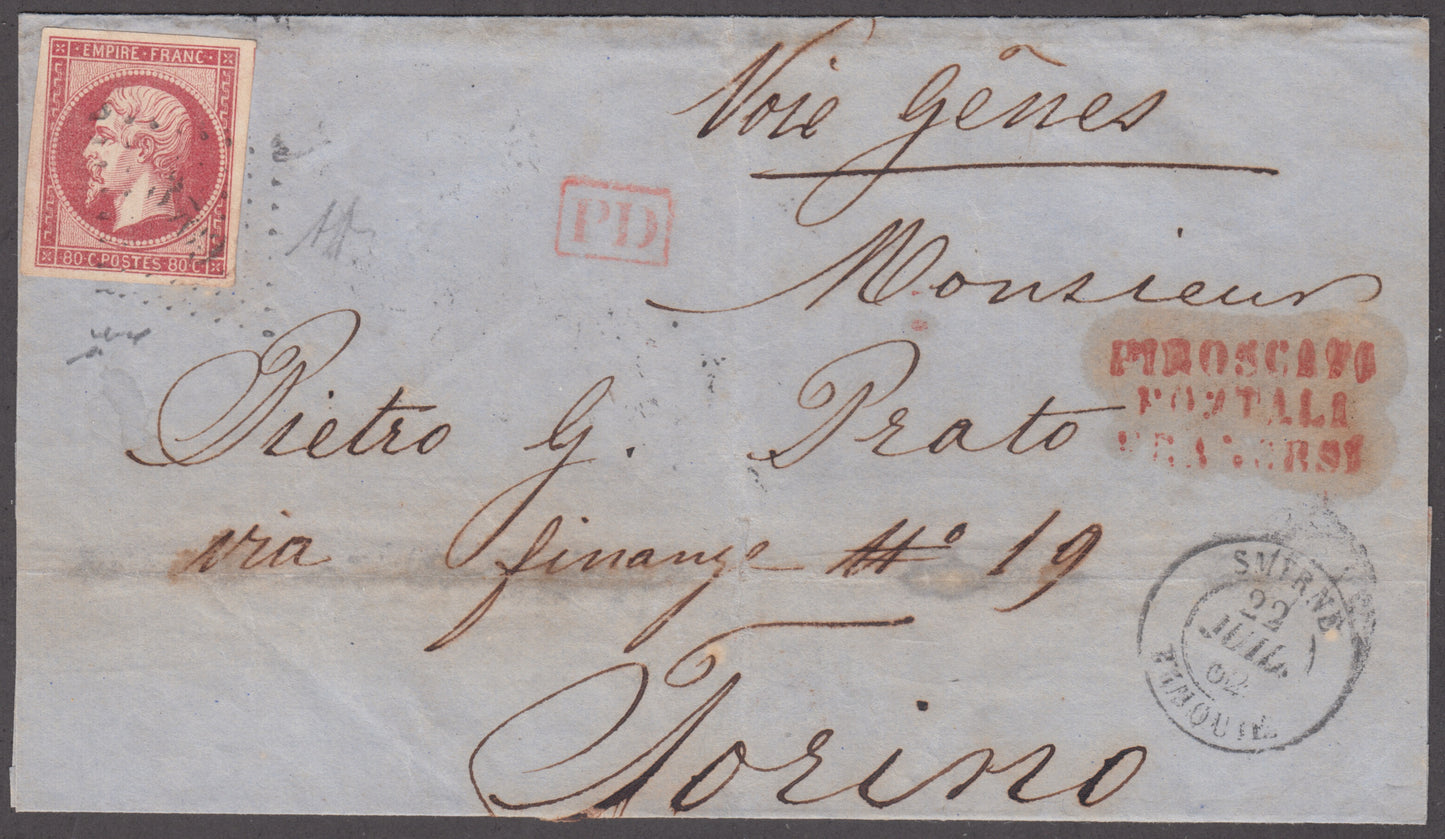 EMPIRE · FRANC ·
80·C·POSTES 80·C·
Voie Gênes
PD
Monsieur
PIROSCAFI
POSTALI
FRANCESI
Pietro G. Prato
via finanze N° 19
SMYRNE
22
JUIL.
62
TURQUIE
Torino